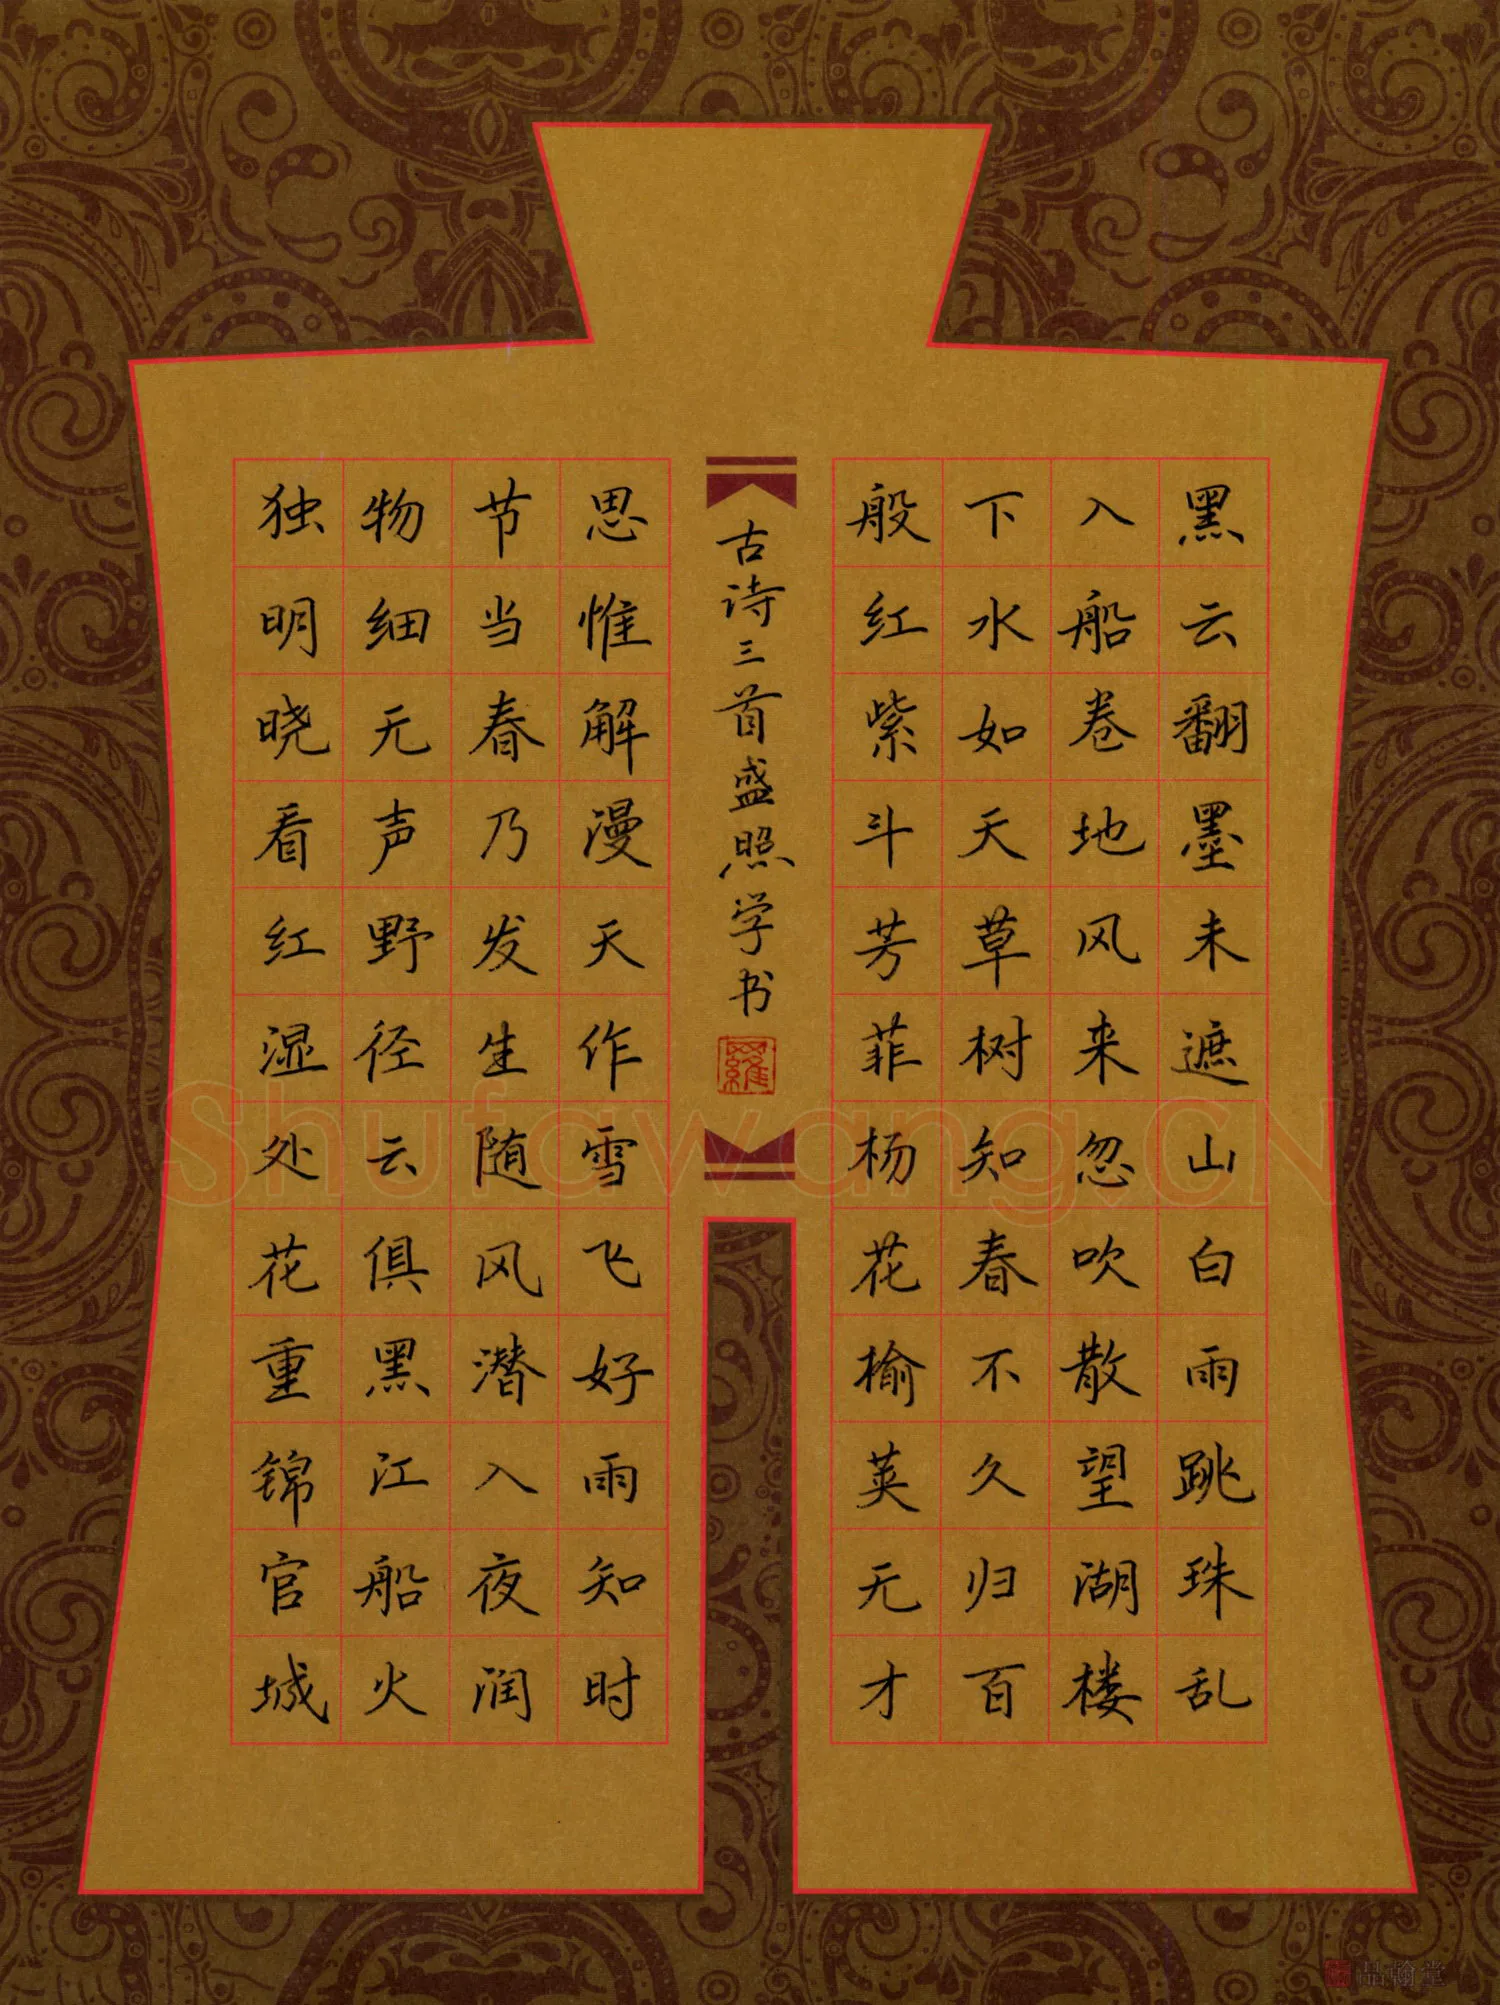 黑云翻墨未遮山白雨跳珠乱
入船卷地风来忽吹散望湖楼
下水如天草树知春不久归百
般红紫斗芳菲杨花榆荚无才
思惟解漫天作雪飞好雨知时
节当春乃发生随风潜入夜润
物细无声野径云俱黑江船火
独明晓看红湿处花重锦官城
古诗三首盛照学书
羅
Shufawang.CN
品翰堂